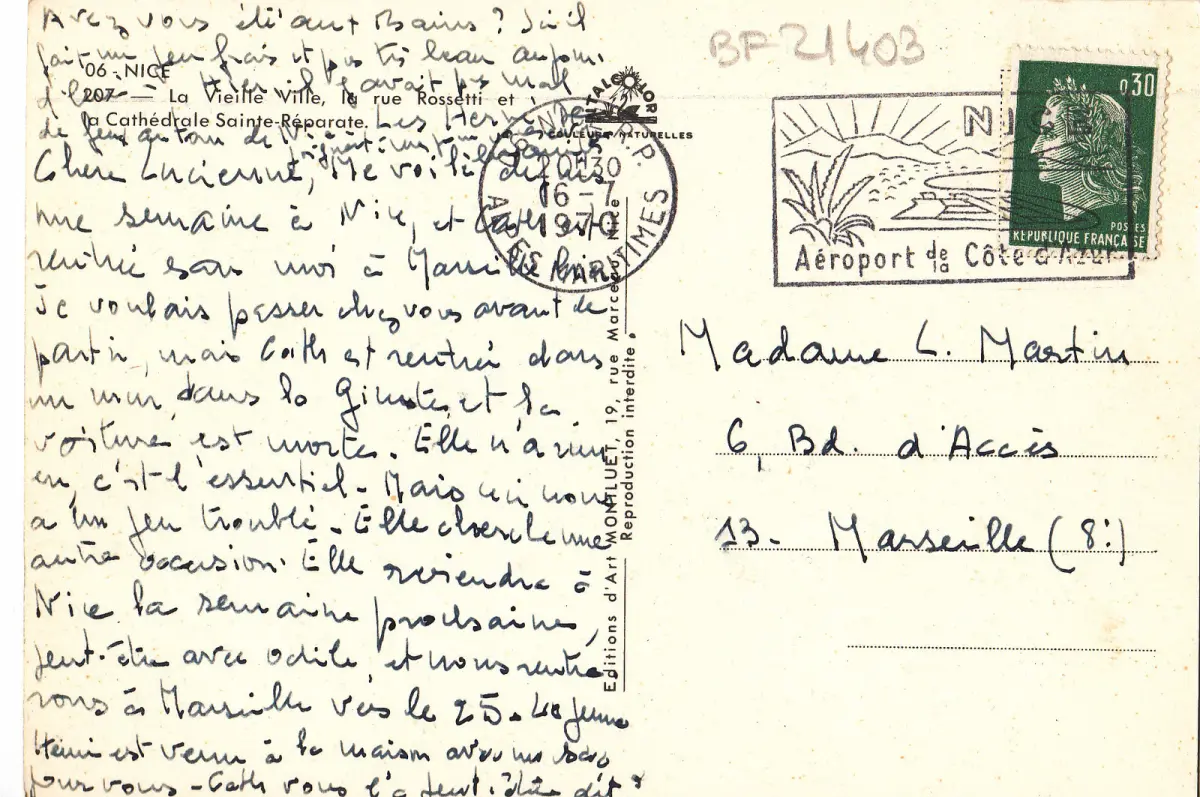 Avez vous été aux Bains ? Ici il
fait un peu frais et pas très beau aujour.
d'hui. Hier il y avait pas mal
de feu autour de
06 - NICE
207 — La Vieille Ville, la rue Rossetti et
la Cathédrale Sainte-Réparate.
Chère Lucienne, Me voilà depuis
une semaine à Nice, et Cath est
rentrée sans moi à Marseille hier
Je voulais passer chez vous avant de
partir, mais Cath est rentrée dans
un mur, dans la Gineste, et la
voiture est morte. Elle n'a rien
eu, c'est l'essentiel - Mais ceci nous
a un peu troublé - Elle cherche une
autre occasion. Elle reviendra à
Nice la semaine prochaine,
peut-être avec Odile, et nous rentre
rons à Marseille vers le 25.
est venu à la maison avec un sac
pour vous - Cath vous l'a peut-être dit ?
COULEURS NATURELLES
20H30
16-7
1970
ALPES MARITIMES
Editions d'Art MONTLUET, 19, rue Marceau, Nice
Reproduction interdite
BF 21403
NICE
Aéroport de la Côte d'Azur
0,30
POSTES
REPUBLIQUE FRANÇAISE
Madame L. Martin
6, Bd. d'Accès
13 - Marseille (8e)